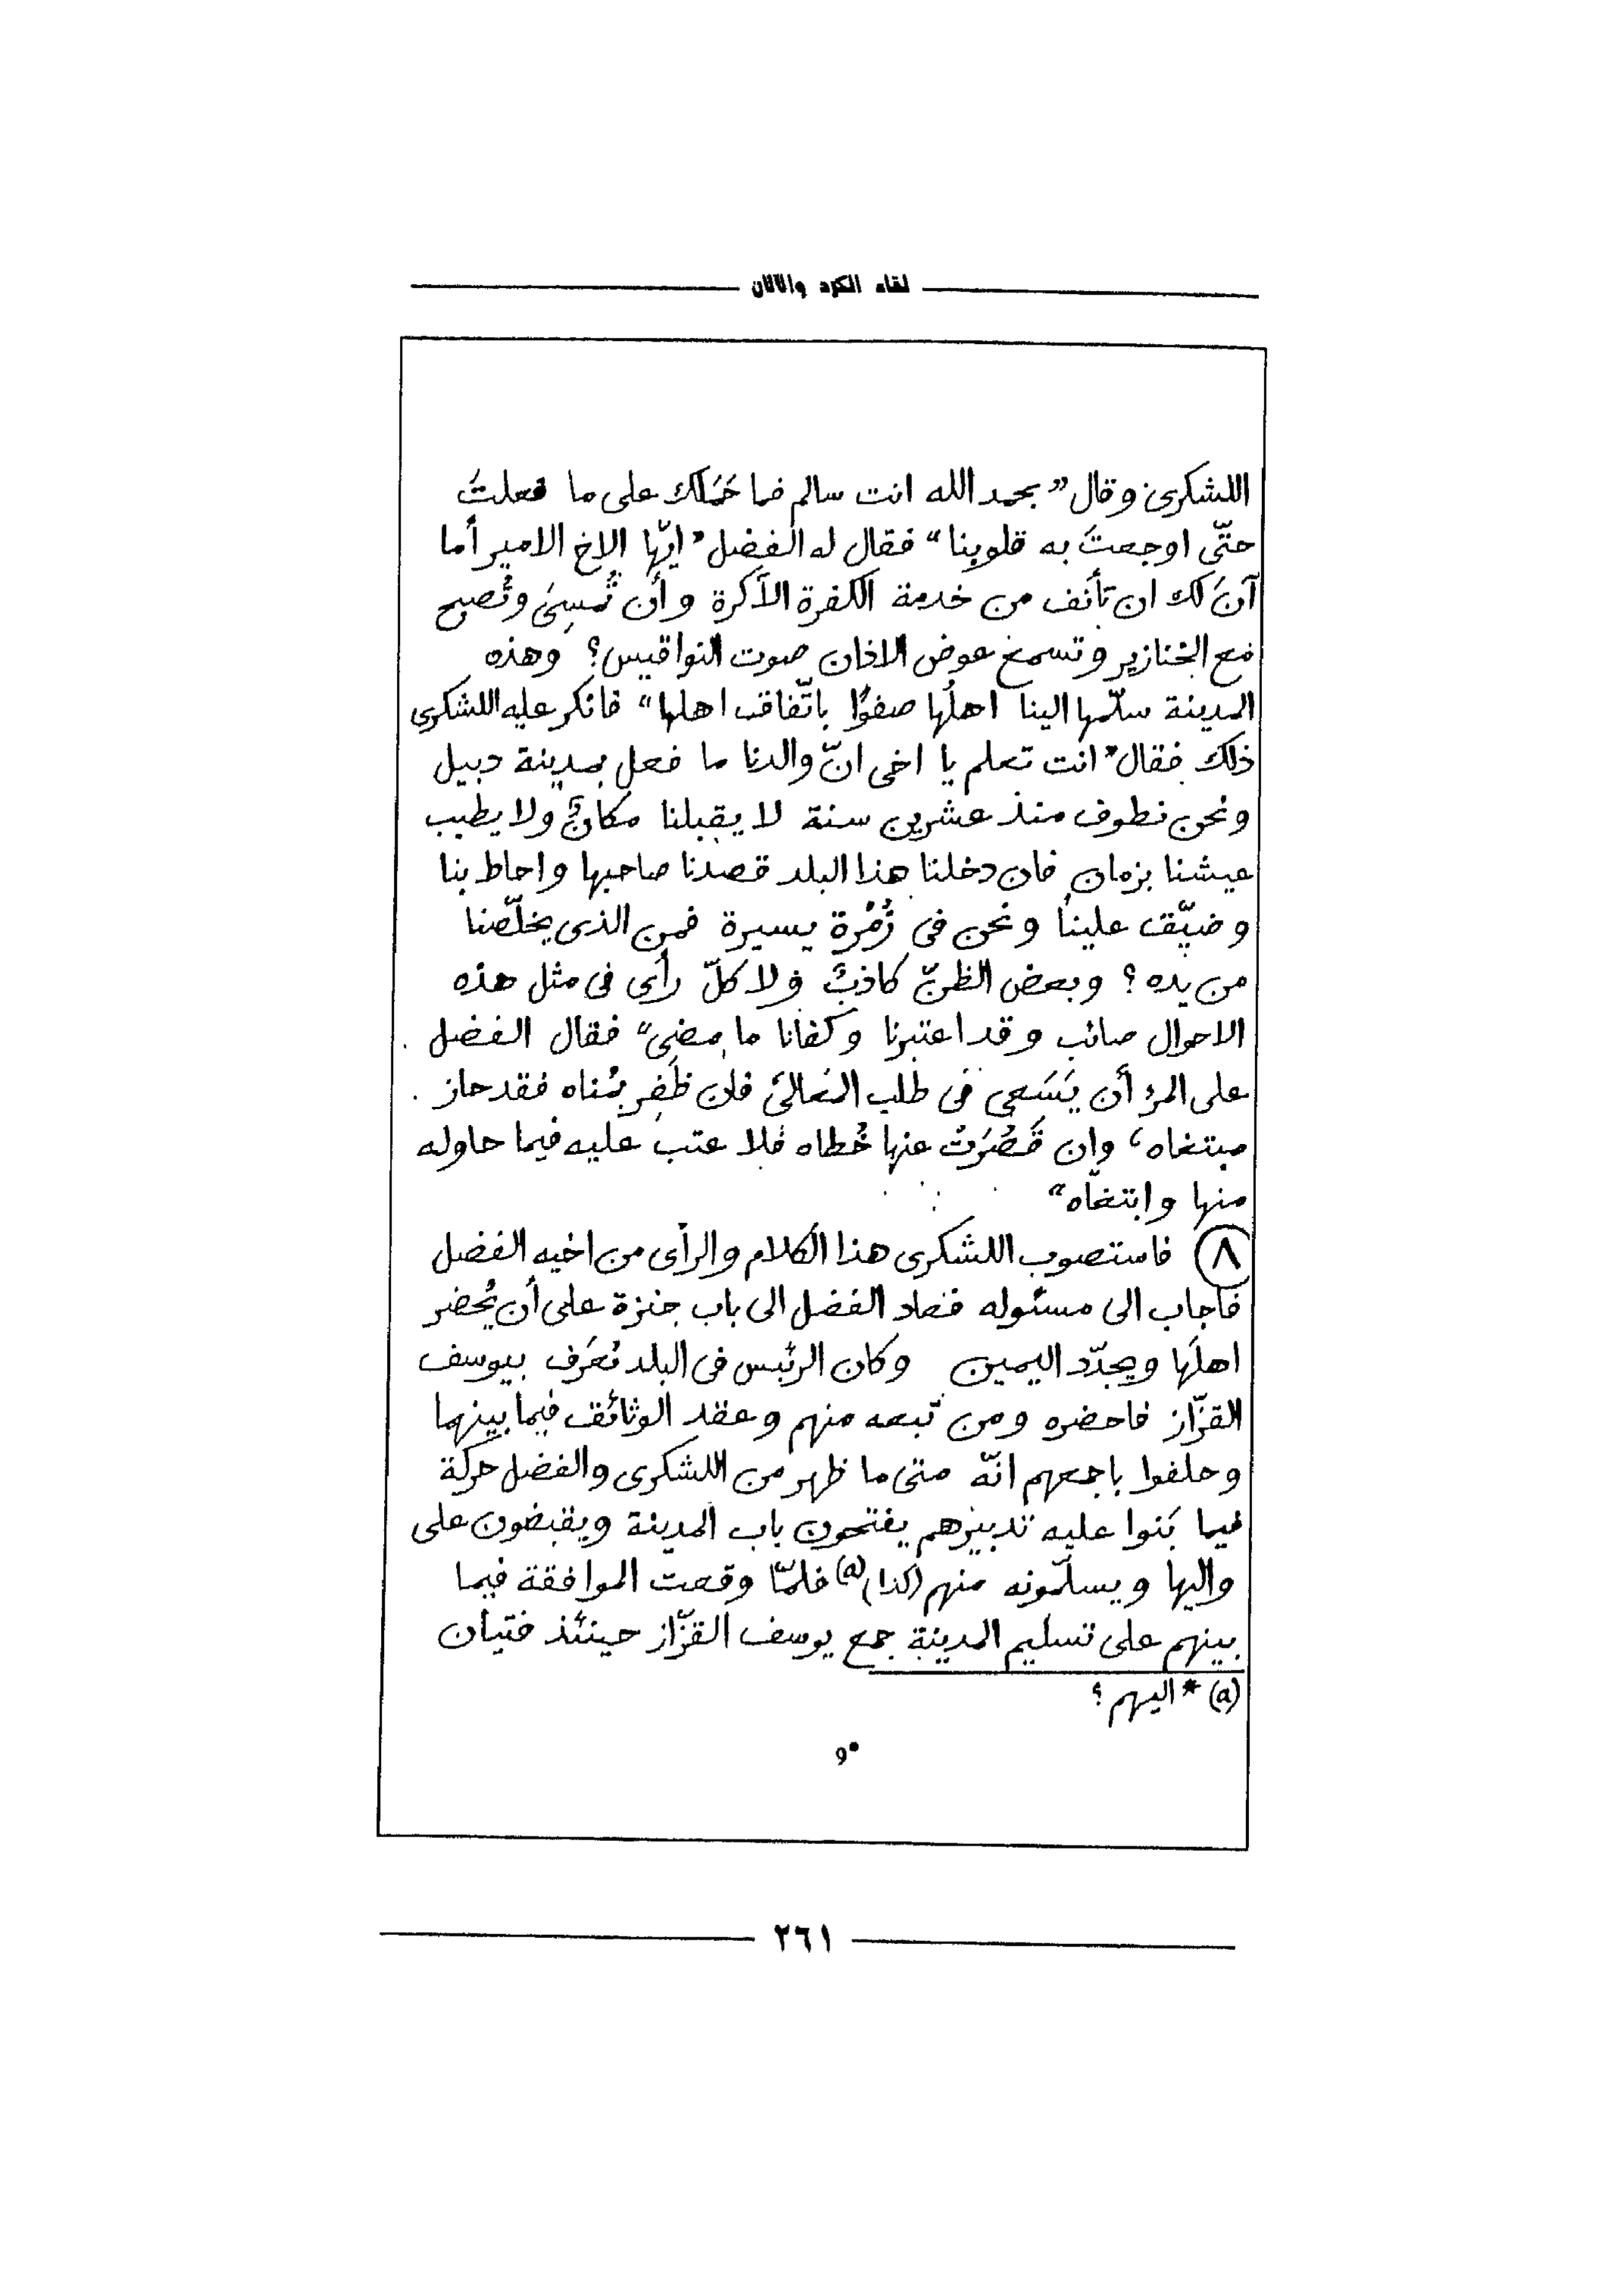 لقاء الكرد واللان
اللشكرى وقال "بحمد الله انت سالم فما حَمَلَك على ما فعلتَ
حتّى اوجعتَ به قلوبنا" فقال له الفضل "ايّها الاخ الامير أما
آنَ لك ان تأنف من خدمة الكفرة الأكرة وأن تُمسِىَ وتُصبح
مع الخنازير وتسمع عوض الاذان صوت النواقيس؟ وهذه
المدينة سلّمها الينا اهلُها صفوًا باتّفاق اهلها" فانكر عليه اللشكرى
ذلك فقال "انت تعلم يا اخى انّ والدنا ما فعل بمدينة دبيل
ونحن نطوف منذ عشرين سنة لا يقبلنا مكانٌ ولا يطيب
عيشنا بزمان فان دخلنا هذا البلد قصدنا صاحبها واحاط بنا
وضيّق علينا ونحن فى زُمْرة يسيرة فمن الذى يخلّصنا
من يده؟ وبعض الظنّ كاذبٌ ولا كلّ رأى فى مثل هذه
الاحوال صائب وقد اعتبرنا وكفانا ما مضى" فقال الفضل
على المرء أن يَسَعى فى طلب المعالىَ فان ظَفِر بمُناه فقد حاز
مبتغاه، وان قَصُرَتْ عنها خُطاه فلا عتب عليه فيما حاوله
منها وابتغاه"
(٨) فاستصوب اللشكرى هذا الكلام والرأى من اخيه الفضل
فأجاب الى مسئوله فعاد الفضل الى باب جنزة على أن يُحضر
اهلَها ويجدّد اليمين وكان الرئيس فى البلد يُعَرف بيوسف
القزّاز فاحضره ومن تبعه منهم وعقد الوثائق فيما بينهما
وحلفوا باجمعهم انّه متى ما ظهر من اللشكرى والفضل حركة
فيما بَنوا عليه تدبيرهم يفتحون باب المدينة ويقبضون على
واليها ويسلّمونه منهم (كذا) (a) فلمّا وقعت الموافقة فيما
بينهم على تسليم المدينة جمع يوسف القزّاز حينئذ فتيان
(a) * اليهم؟
٢٦١